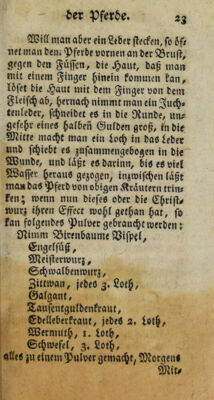 der Pferde. 23
Will man aber ein Leder stecken, so öf-
net man dem Pferde vornen an der Brust,
gegen den Füssen, die Haut, daß man
mit einem Finger hinein kommen kan,
löset die Haut mit dem Finger von dem
Fleisch ab, hernach nimmt man ein Juch-
tenleder, schneidet es in die Runde, un-
gefehr eines halben Gulden groß, in die
Mitte macht man ein Loch in das Leder
und schiebt es zusammengebogen in die
Wunde, und läßt es darinn, bis es viel
Wasser heraus gezogen, inzwischen läßt
man das Pferd von obigen Kräutern trin-
ken; wenn nun dieses oder die Christ-
wurz ihren Effect wohl gethan hat, so
kan folgendes Pulver gebraucht werden:
Nimm Birenbaume Bispel,
Engelsüß,
Meisterwurz,
Schwalbenwurz,
Zittwan, jedes 3. Loth,
Galgant,
Tausentguldenkraut,
Edelleberkraut, jedes 2. Loth,
Wermuth, 1. Loth,
Schwefel, 3. Loth,
alles zu einem Pulver gemacht, Morgens
Mit-